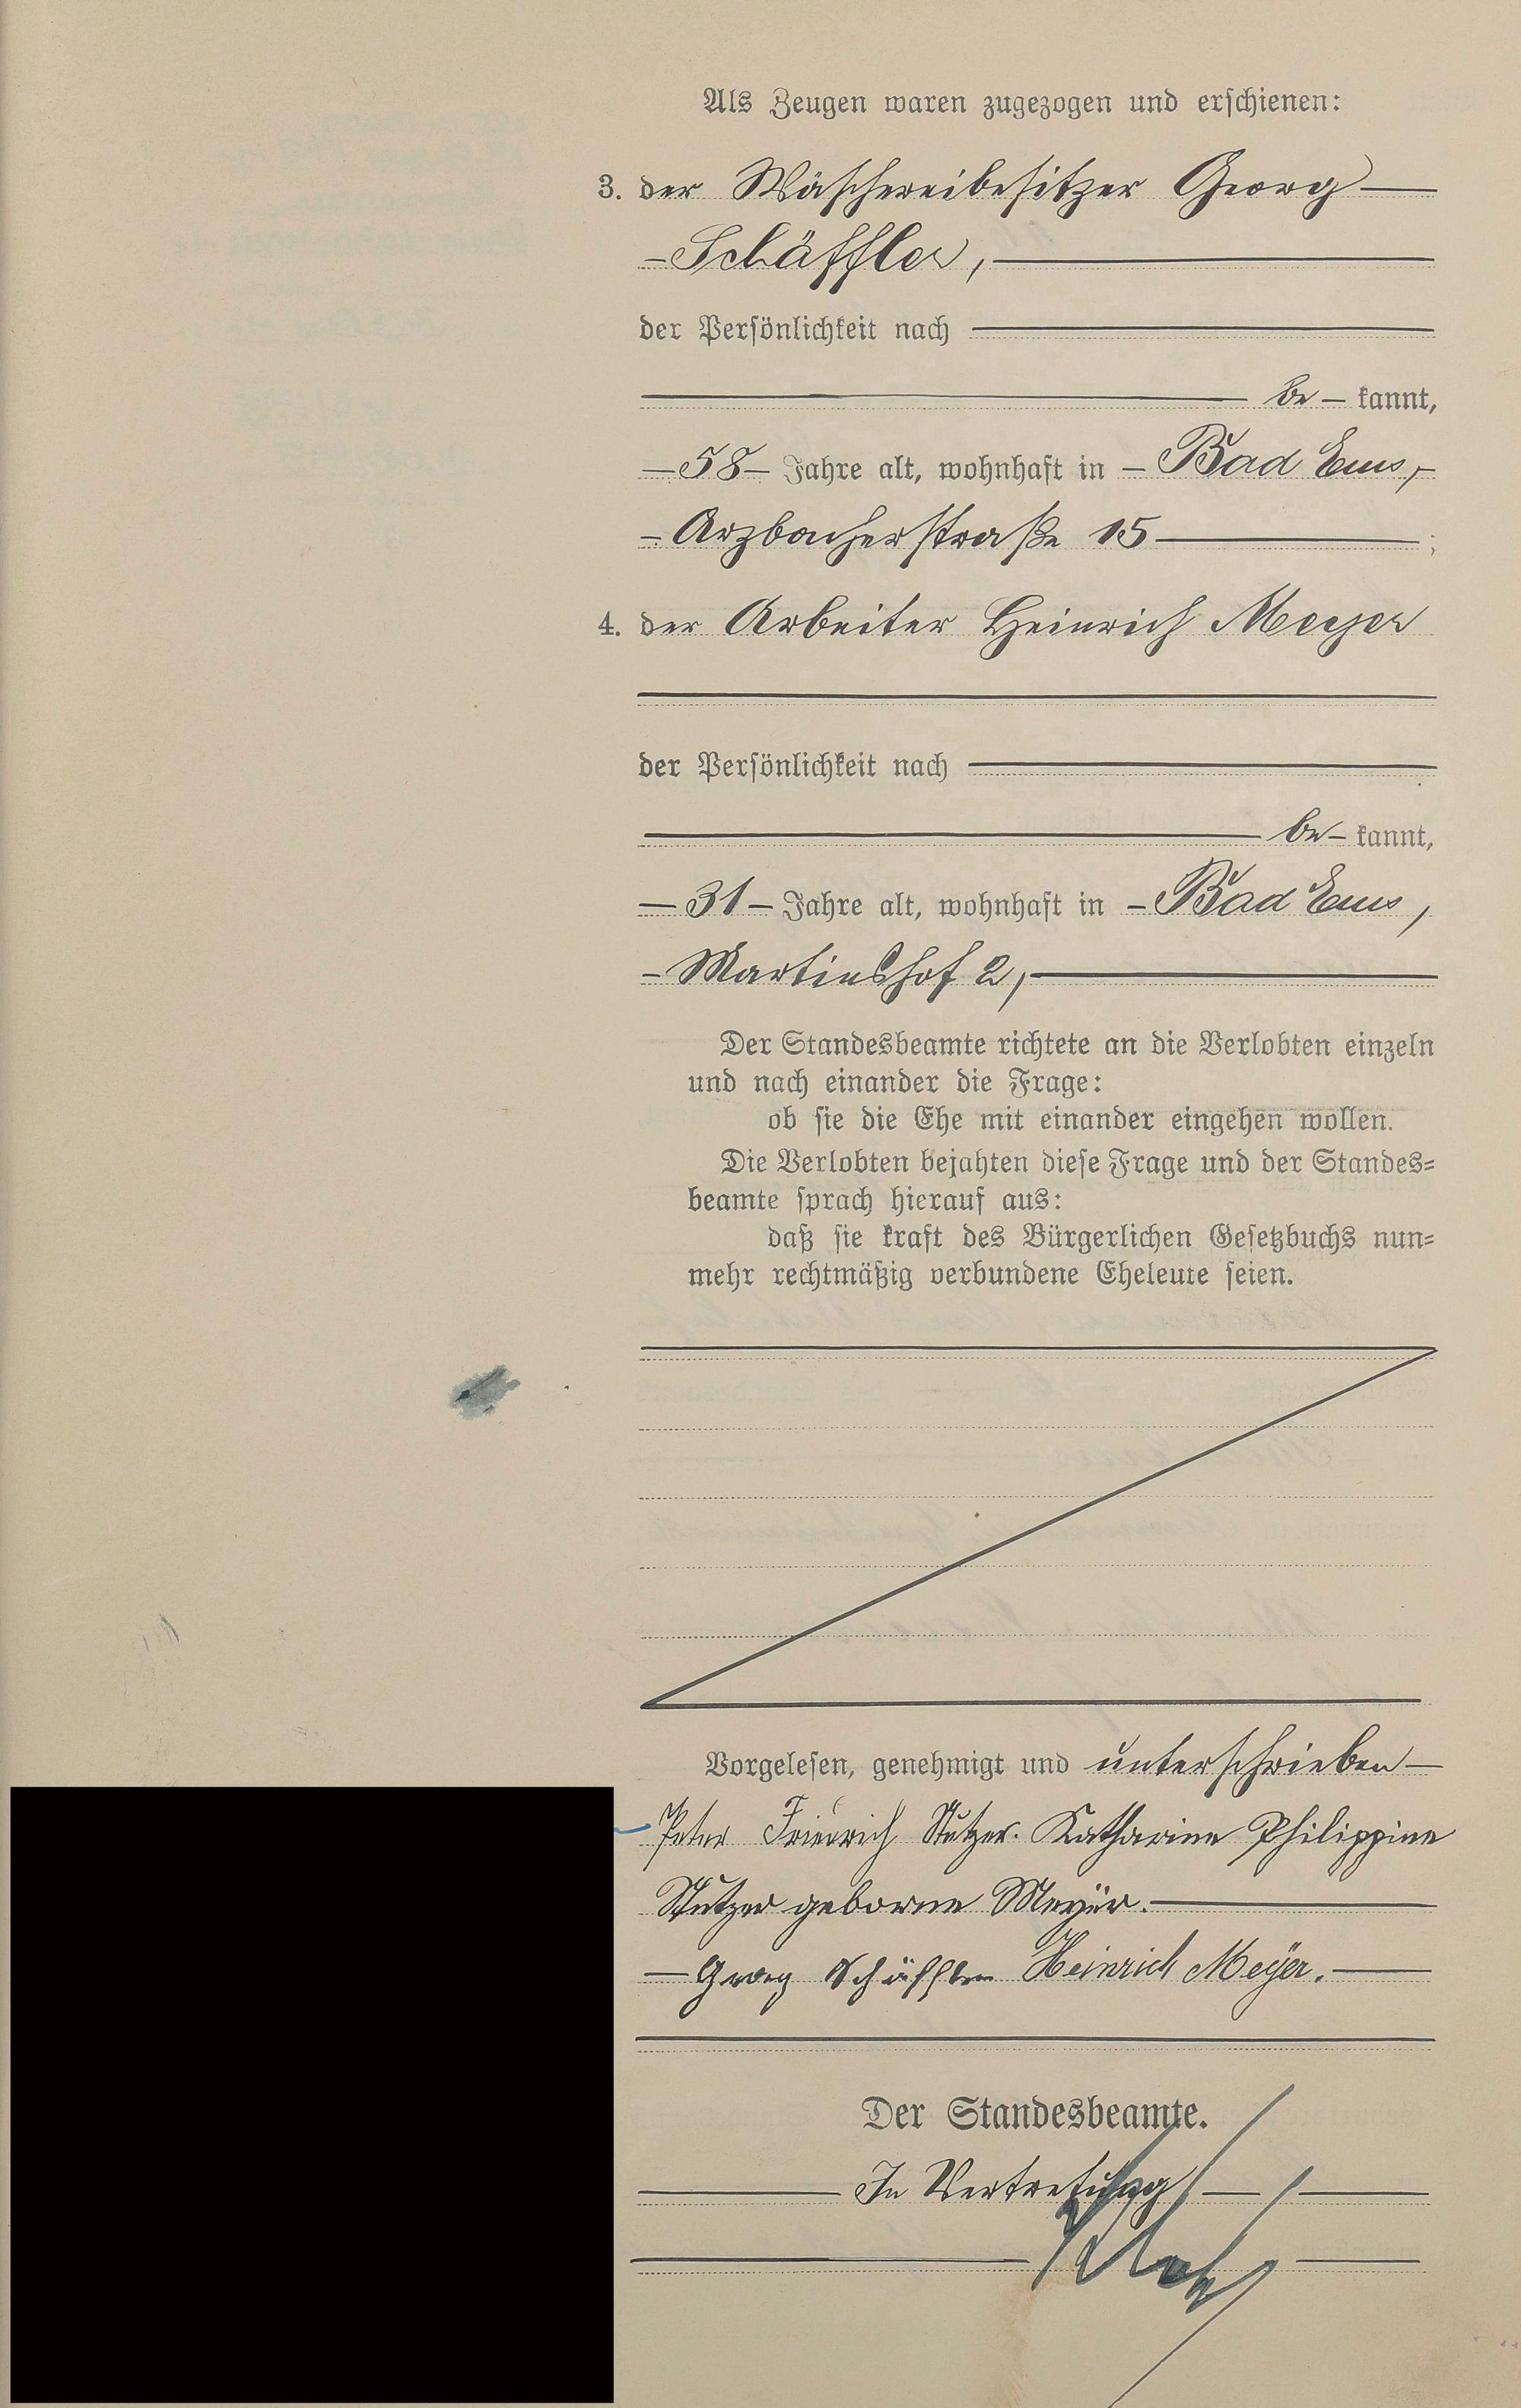 Als Zeugen waren zugezogen und erschienen:
3. der Wäschereibesitzer Georg
Schäffler,
der Persönlichkeit nach
be kannt,
58 Jahre alt, wohnhaft in Bad Ems,
Arzbacherstraße 15 ;
4. der Arbeiter Heinrich Meyer
der Persönlichkeit nach
be kannt,
31 Jahre alt, wohnhaft in Bad Ems,
Martinshof 2,
Der Standesbeamte richtete an die Verlobten einzeln
und nach einander die Frage:
ob sie die Ehe mit einander eingehen wollen.
Die Verlobten bejahten diese Frage und der Standes=
beamte sprach hierauf aus:
daß sie kraft des Bürgerlichen Gesetzbuchs nun=
mehr rechtmäßig verbundene Eheleute seien.
Vorgelesen, genehmigt und unterschrieben
Peter Friedrich Stutzer. Katharine Philippine
Stutzer geborne Meyer.
Georg Schäffler Heinrich Meÿer.
Der Standesbeamte.
In Vertretung